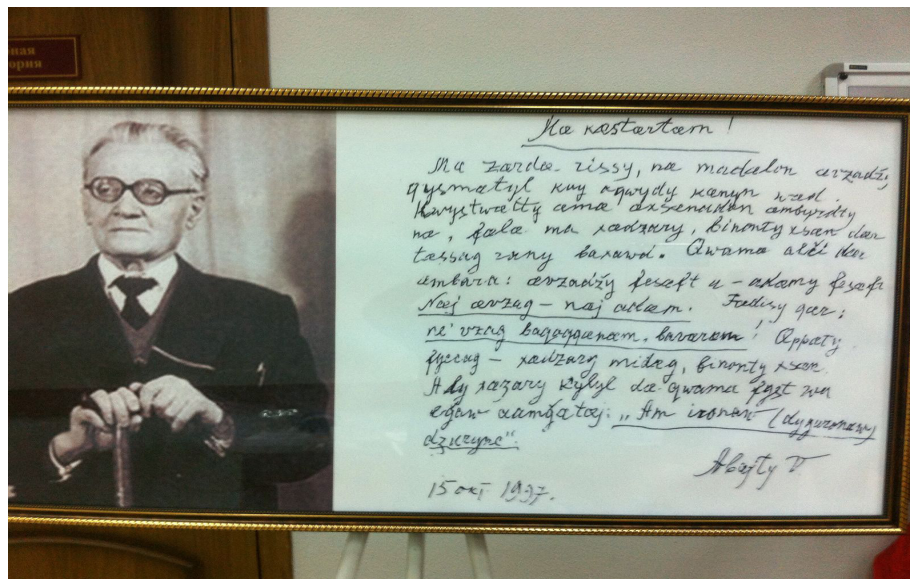 ная
ория
Mæ kæstærtæm!
Mæ zærdæ rissy, næ madælon ævzadžy
qysmætyl kuy aqwydy kænyn wæd.
Kwystwætty æmæ æxsænadon æmbyrdty
næ, fælæ ma xædzary, binonty xsæn dær
tæssag uavy bavawd. Qwamæ alči dær
æmbara: ævzadžy fesæft u – adæmy fesæft
Næj ævzag – næj adæm. Fædisy qær:
ne'vzag baqaqqænæm, baværæm! Æppæty
fyccag – xædzary midæg, binonty xsæn.
Ady xædzary kʺylyl dæ qwamæ fyst wa
egʺaw damǧatæj: „Am ironaw (dygʺuronawy
dzuryncʺ.
Abajty V
15 okt 1997.